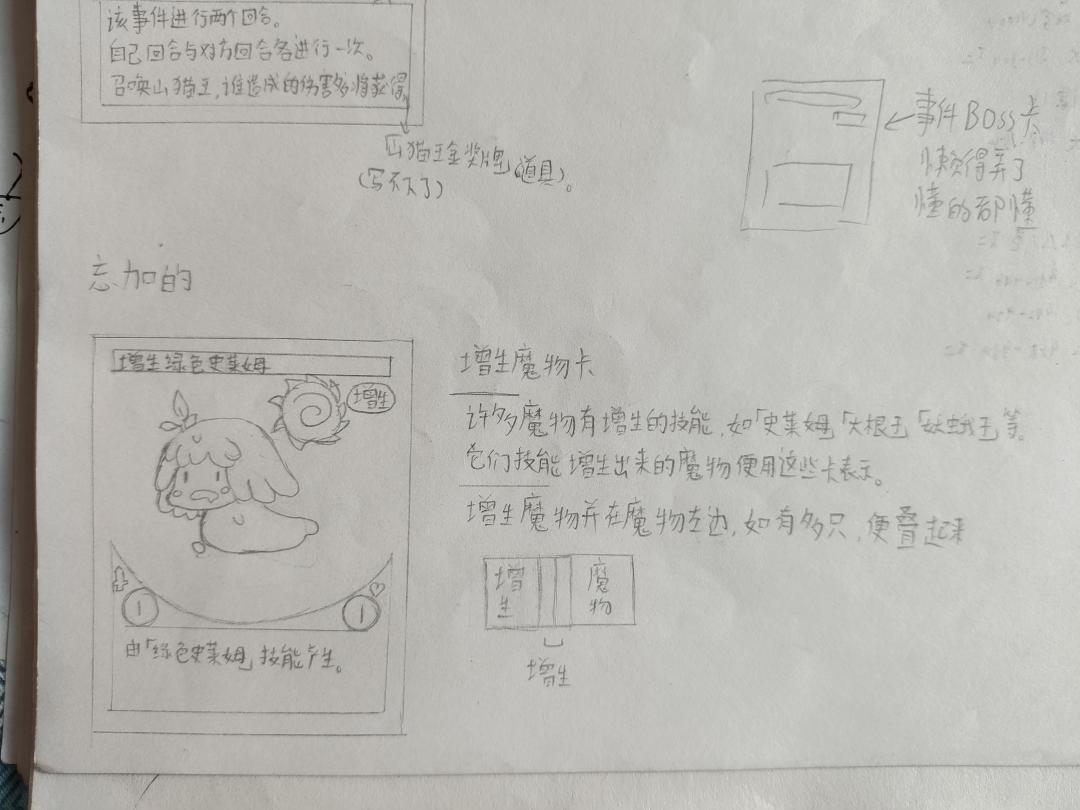 该事件进行两个回合。
自己回合与对方回合各进行一次。
召唤山猫王,谁造成的伤害多将获得
山猫王金奖牌(道具)。
(写不下了)
事件BOSS卡
懒得弄了
懂的都懂
忘加的
增生绿色史莱姆
增生
1
1
由「绿色史莱姆」技能产生。
增生魔物卡
许多魔物有增生的技能,如「史莱姆」「大根王」「妖蛾王」等。
它们技能增生出来的魔物便用这些卡表示。
增生魔物并在魔物左边,如有多只,便叠起来
增生
魔物
增生